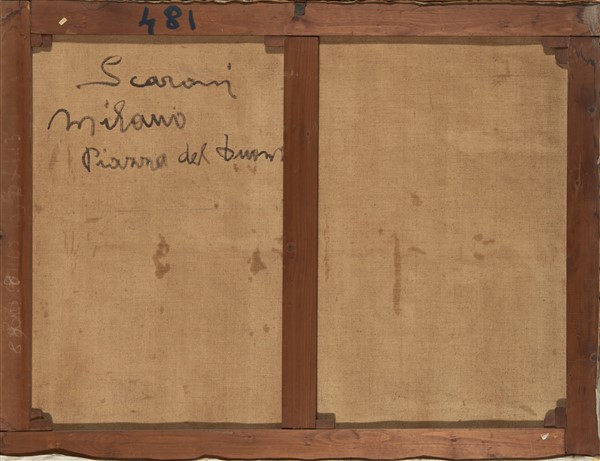 481
Scaroni
Milano
Piazza del Duom